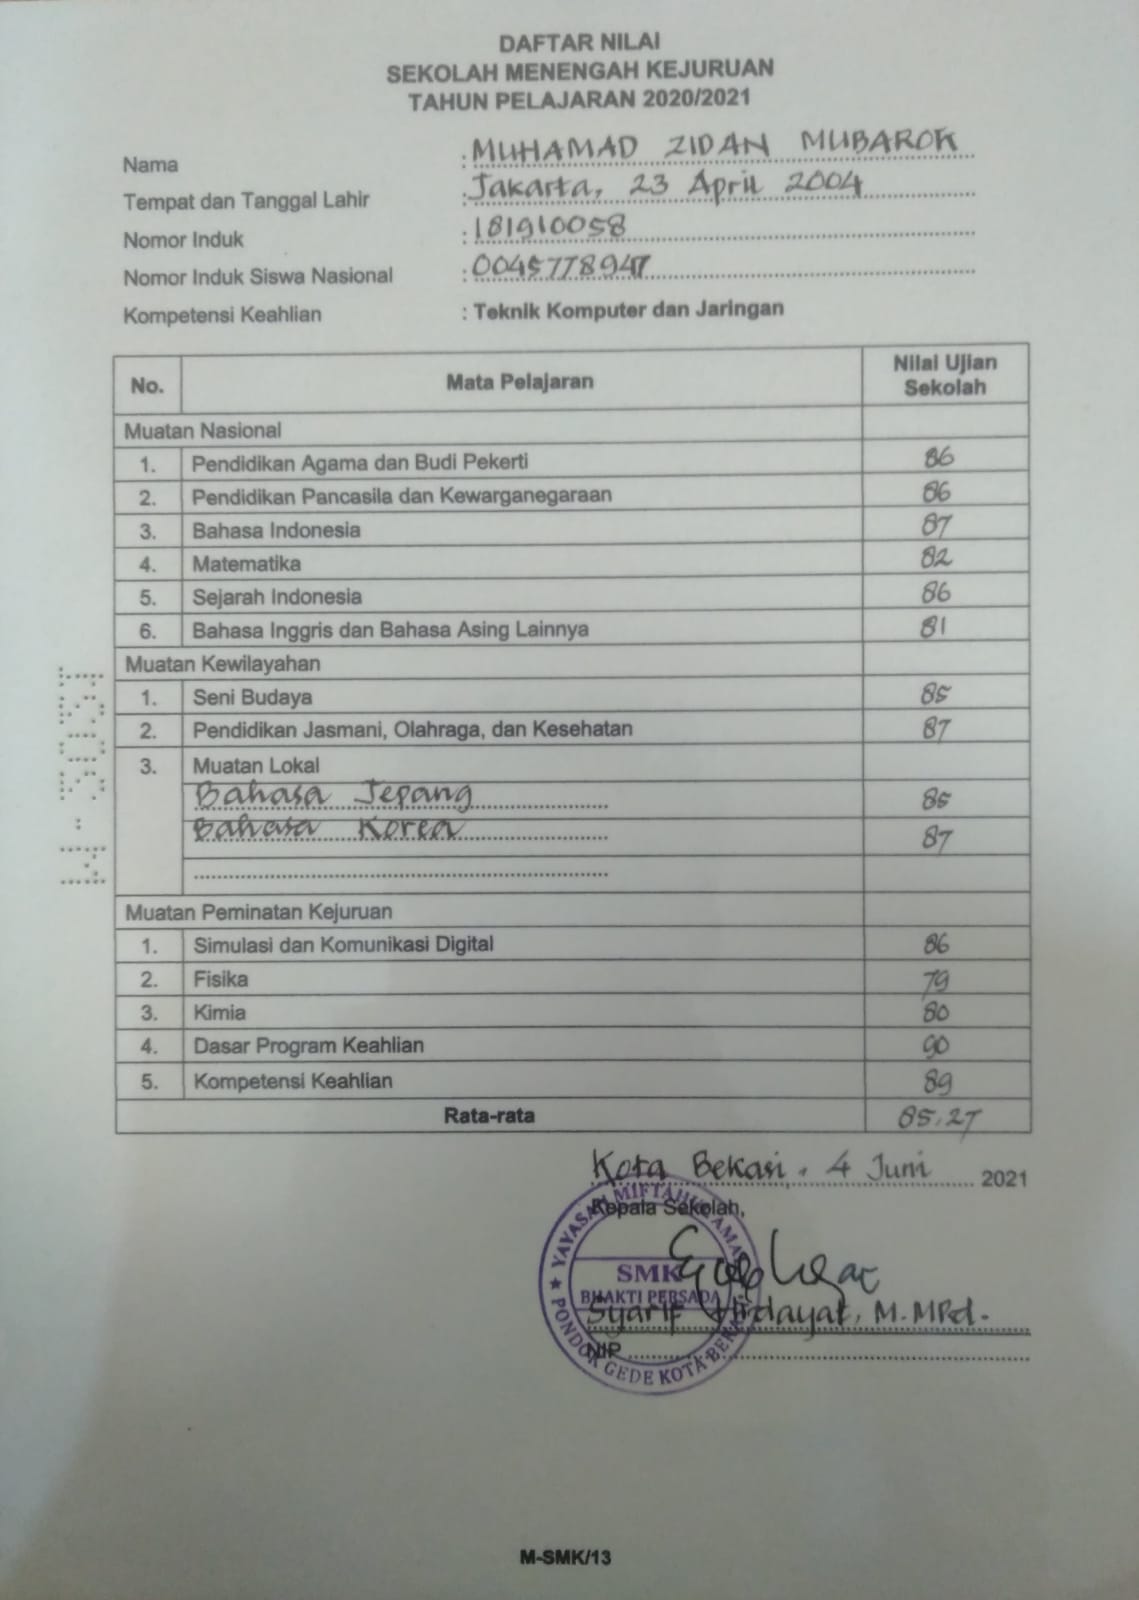 DAFTAR NILAI
SEKOLAH MENENGAH KEJURUAN
TAHUN PELAJARAN 2020/2021
Nama : MUHAMAD ZIDAN MUBAROK
Tempat dan Tanggal Lahir : Jakarta, 23 April 2004
Nomor Induk : 181910058
Nomor Induk Siswa Nasional : 0045778947
Kompetensi Keahlian : Teknik Komputer dan Jaringan
No. Mata Pelajaran Nilai Ujian Sekolah
Muatan Nasional
1. Pendidikan Agama dan Budi Pekerti 86
2. Pendidikan Pancasila dan Kewarganegaraan 86
3. Bahasa Indonesia 87
4. Matematika 82
5. Sejarah Indonesia 86
6. Bahasa Inggris dan Bahasa Asing Lainnya 81
Muatan Kewilayahan
1. Seni Budaya 85
2. Pendidikan Jasmani, Olahraga, dan Kesehatan 87
3. Muatan Lokal
Bahasa Jepang 85
Bahasa Korea 87
Muatan Peminatan Kejuruan
1. Simulasi dan Komunikasi Digital 86
2. Fisika 79
3. Kimia 80
4. Dasar Program Keahlian 90
5. Kompetensi Keahlian 89
Rata-rata 85,27
Kota Bekasi, 4 Juni 2021
Kepala Sekolah,
YAYASAN MIFTAHUL
SMK
BHAKTI PERSADA
PONDOK GEDE KOTA BEKASI
Syarif Hidayat, M.MPd.
NIP
M-SMK/13